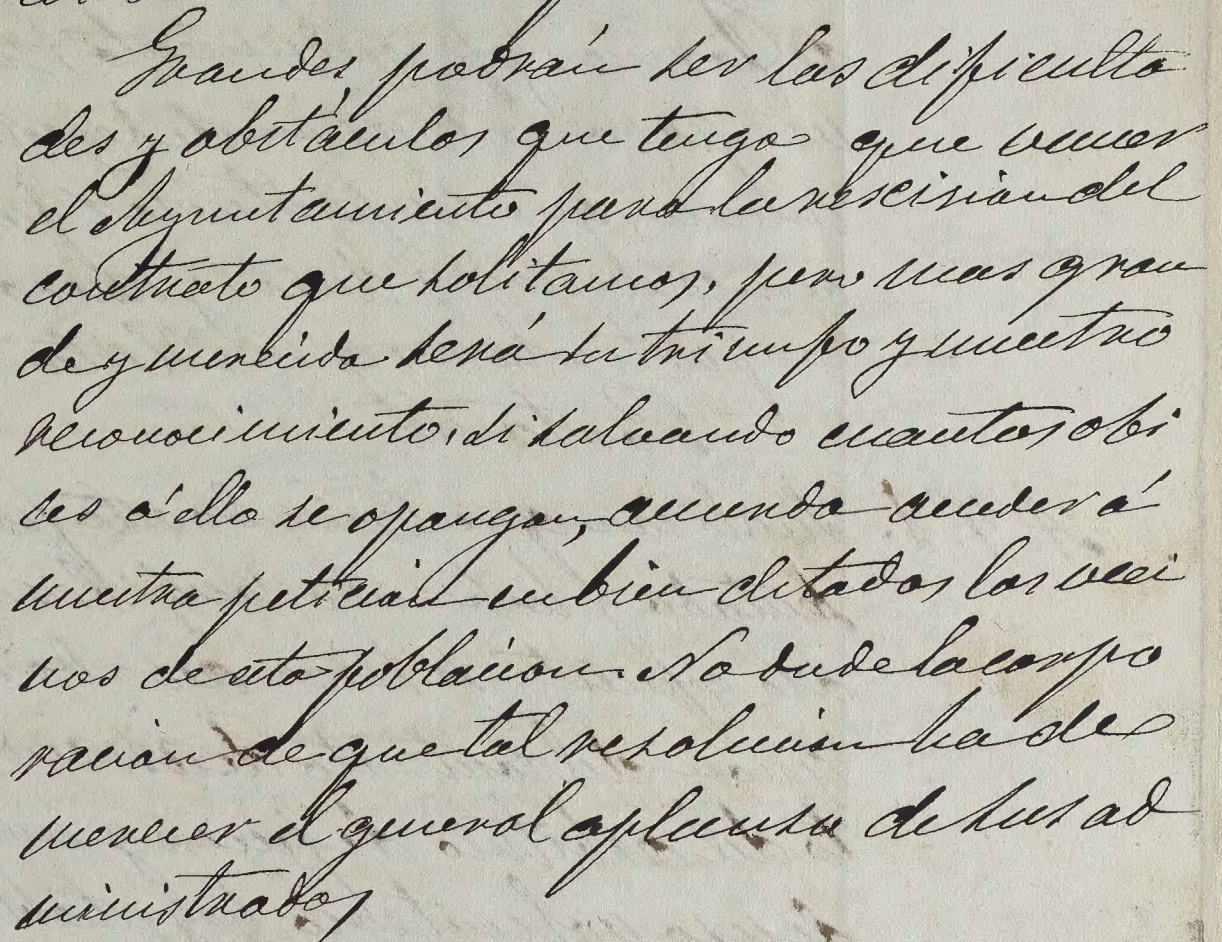 Grandes podrán ser las dificulta
des y obstáculos que tenga que vencer
el Ayuntamiento para la rescision del
contrato que solitamos, pero mas gran
de y merecida será su triumfo y nuestro
reconocimiento, si salvando cuantos obi
ces á ello se opongan, acuerda acceder á
nuestra peticion en bien de todos los veci
nos de esta poblacion. No dude la corpo
racion de que tal resolucion ha de
merecer el general aplauso de sus ad
ministrados